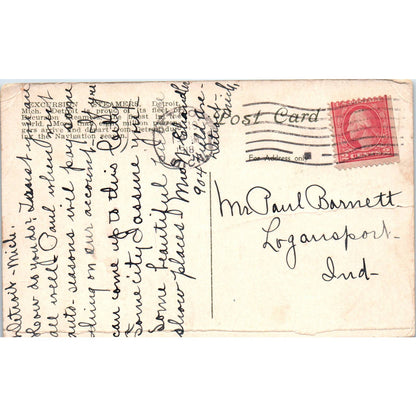 EXCURSION STEAMERS, Detroit,
Mich. Detroit is proud of its fleet of
Excursion Steamers, the finest in the
world. More than million passen-
gers arrive and depart from Detroit dur-
ing the Navigation season.
Post Card
For Address only
Detroit-Mich.
How are you do's? Trust you are
all well. Paul when your
auto-seasons will pay some
thing on our account - you
can come up to this
Some city I assure you
Some beautiful
show places Chandler
904
Detroit-
Mich.
Mr Paul Barnett-
Logansport-
Ind-